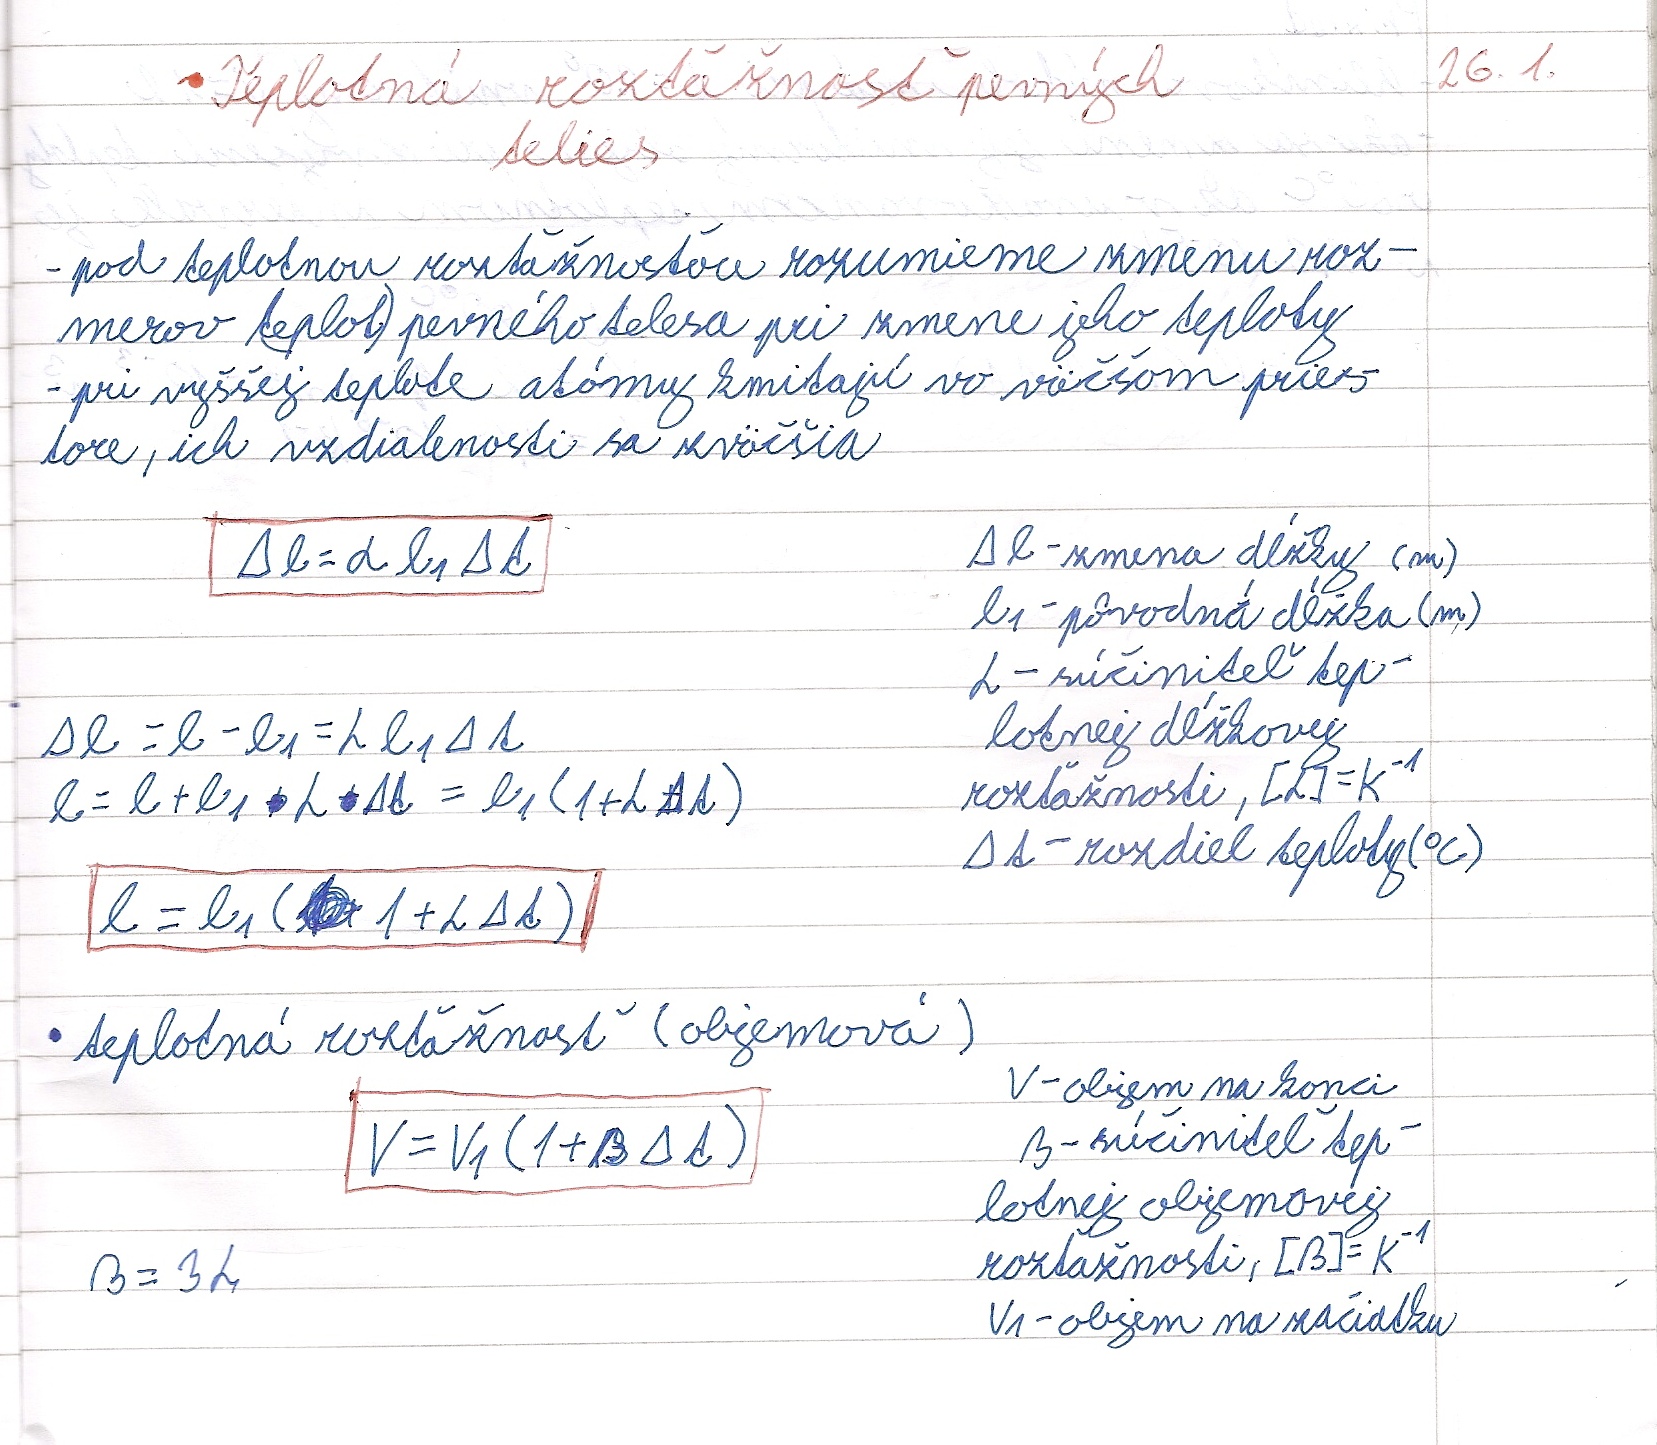 • Teplotná rozťažnosť pevných 26. 1.
telies
- pod teplotnou rozťažnosťou rozumieme zmenu roz-
merov (teplot) pevného telesa pri zmene jeho teploty
- pri vyššej teplote atómy kmitajú vo väčšom pries
tore, ich vzdialenosti sa zväčšia
Δl = α l₁ Δt
Δl - zmena dĺžky (m)
l₁ - pôvodná dĺžka (m)
α - súčiniteľ tep-
lotnej dĺžkovej
rozťažnosti, [α] = K⁻¹
Δt - rozdiel teploty (°C)
Δl = l - l₁ = α l₁ Δt
l = l + l₁ • α • Δt = l₁ (1 + α Δt)
l = l₁ ( 1 + α Δt)
• teplotná rozťažnosť (objemová)
V = V₁ (1 + β Δt)
V - objem na konci
β - súčiniteľ tep-
lotnej objemovej
rozťažnosti, [β] = K⁻¹
V₁ - objem na začiatku
β = 3α